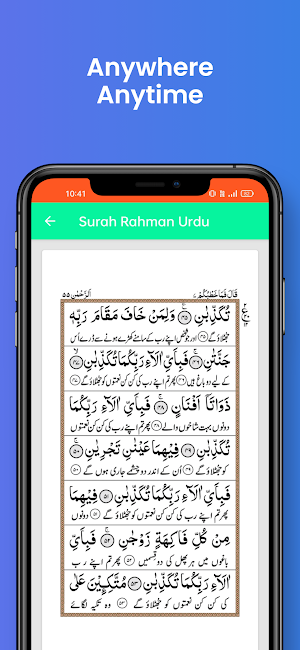 Anywhere
Anytime
10:41
Surah Rahman Urdu
قَالَ فَمَا خَطْبُكُمْ ٢٧
اَلرَّحْمٰن ٥٥
تُكَذِّبٰنِ ﴿٤٥﴾ وَلِمَنْ خَافَ مَقَامَ رَبِّهٖ
جھٹلاؤ گے اور جو شخص اپنے رب کے سامنے کھڑے ہونے سے ڈرے اُس
جَنَّتٰنِ ﴿٤٦﴾ فَبِاَيِّ اٰلَآءِ رَبِّكُمَا تُكَذِّبٰنِ ﴿٤٧﴾
کے لیے دو باغ ہیں پھر تم اپنے رب کی کن کن نعمتوں کو جھٹلاؤ گے
ذَوَاتَآ اَفْنَانٍ ﴿٤٨﴾ فَبِاَيِّ اٰلَآءِ رَبِّكُمَا
دونوں بہت شاخوں والے پھر تم اپنے رب کی کن کن نعمتوں
تُكَذِّبٰنِ ﴿٤٩﴾ فِيْهِمَا عَيْنٰنِ تَجْرِيٰنِ ﴿٥٠﴾
کو جھٹلاؤ گے اُن کے اندر دو چشمے جاری ہوں گے
فَبِاَيِّ اٰلَآءِ رَبِّكُمَا تُكَذِّبٰنِ ﴿٥١﴾ فِيْهِمَا
پھر تم اپنے رب کی کن کن نعمتوں کو جھٹلاؤ گے دونوں
مِنْ كُلِّ فَاكِهَةٍ زَوْجٰنِ ﴿٥٢﴾ فَبِاَيِّ
باغوں میں ہر پھل کی دو قسمیں پھر تم اپنے رب
اٰلَآءِ رَبِّكُمَا تُكَذِّبٰنِ ﴿٥٣﴾ مُتَّكِـِٕيْنَ عَلٰى
کی کن کن نعمتوں کو جھٹلاؤ گے وہ تکیہ لگائے